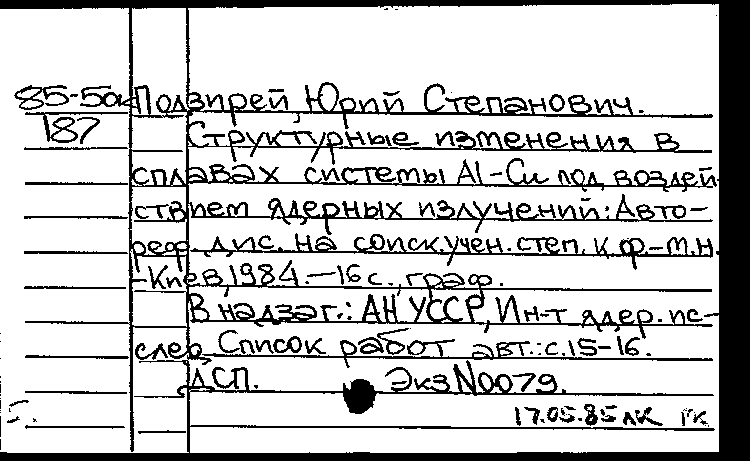 85-5дк Подзирей, Юрий Степанович.
187 Структурные изменения в
сплавах системы Al-Cu под воздей-
ствием ядерных излучений: Авто-
реф. дис. на соиск. учен. степ. к. ф.-м. н.
-Киев, 1984.-16 с., граф.
В надзаг.: АН УССР, Ин-т ядер. ис-
след. Список работ авт.: с. 15-16.
ДСП. Экз N0079.
17.05.85 ЛК ГК